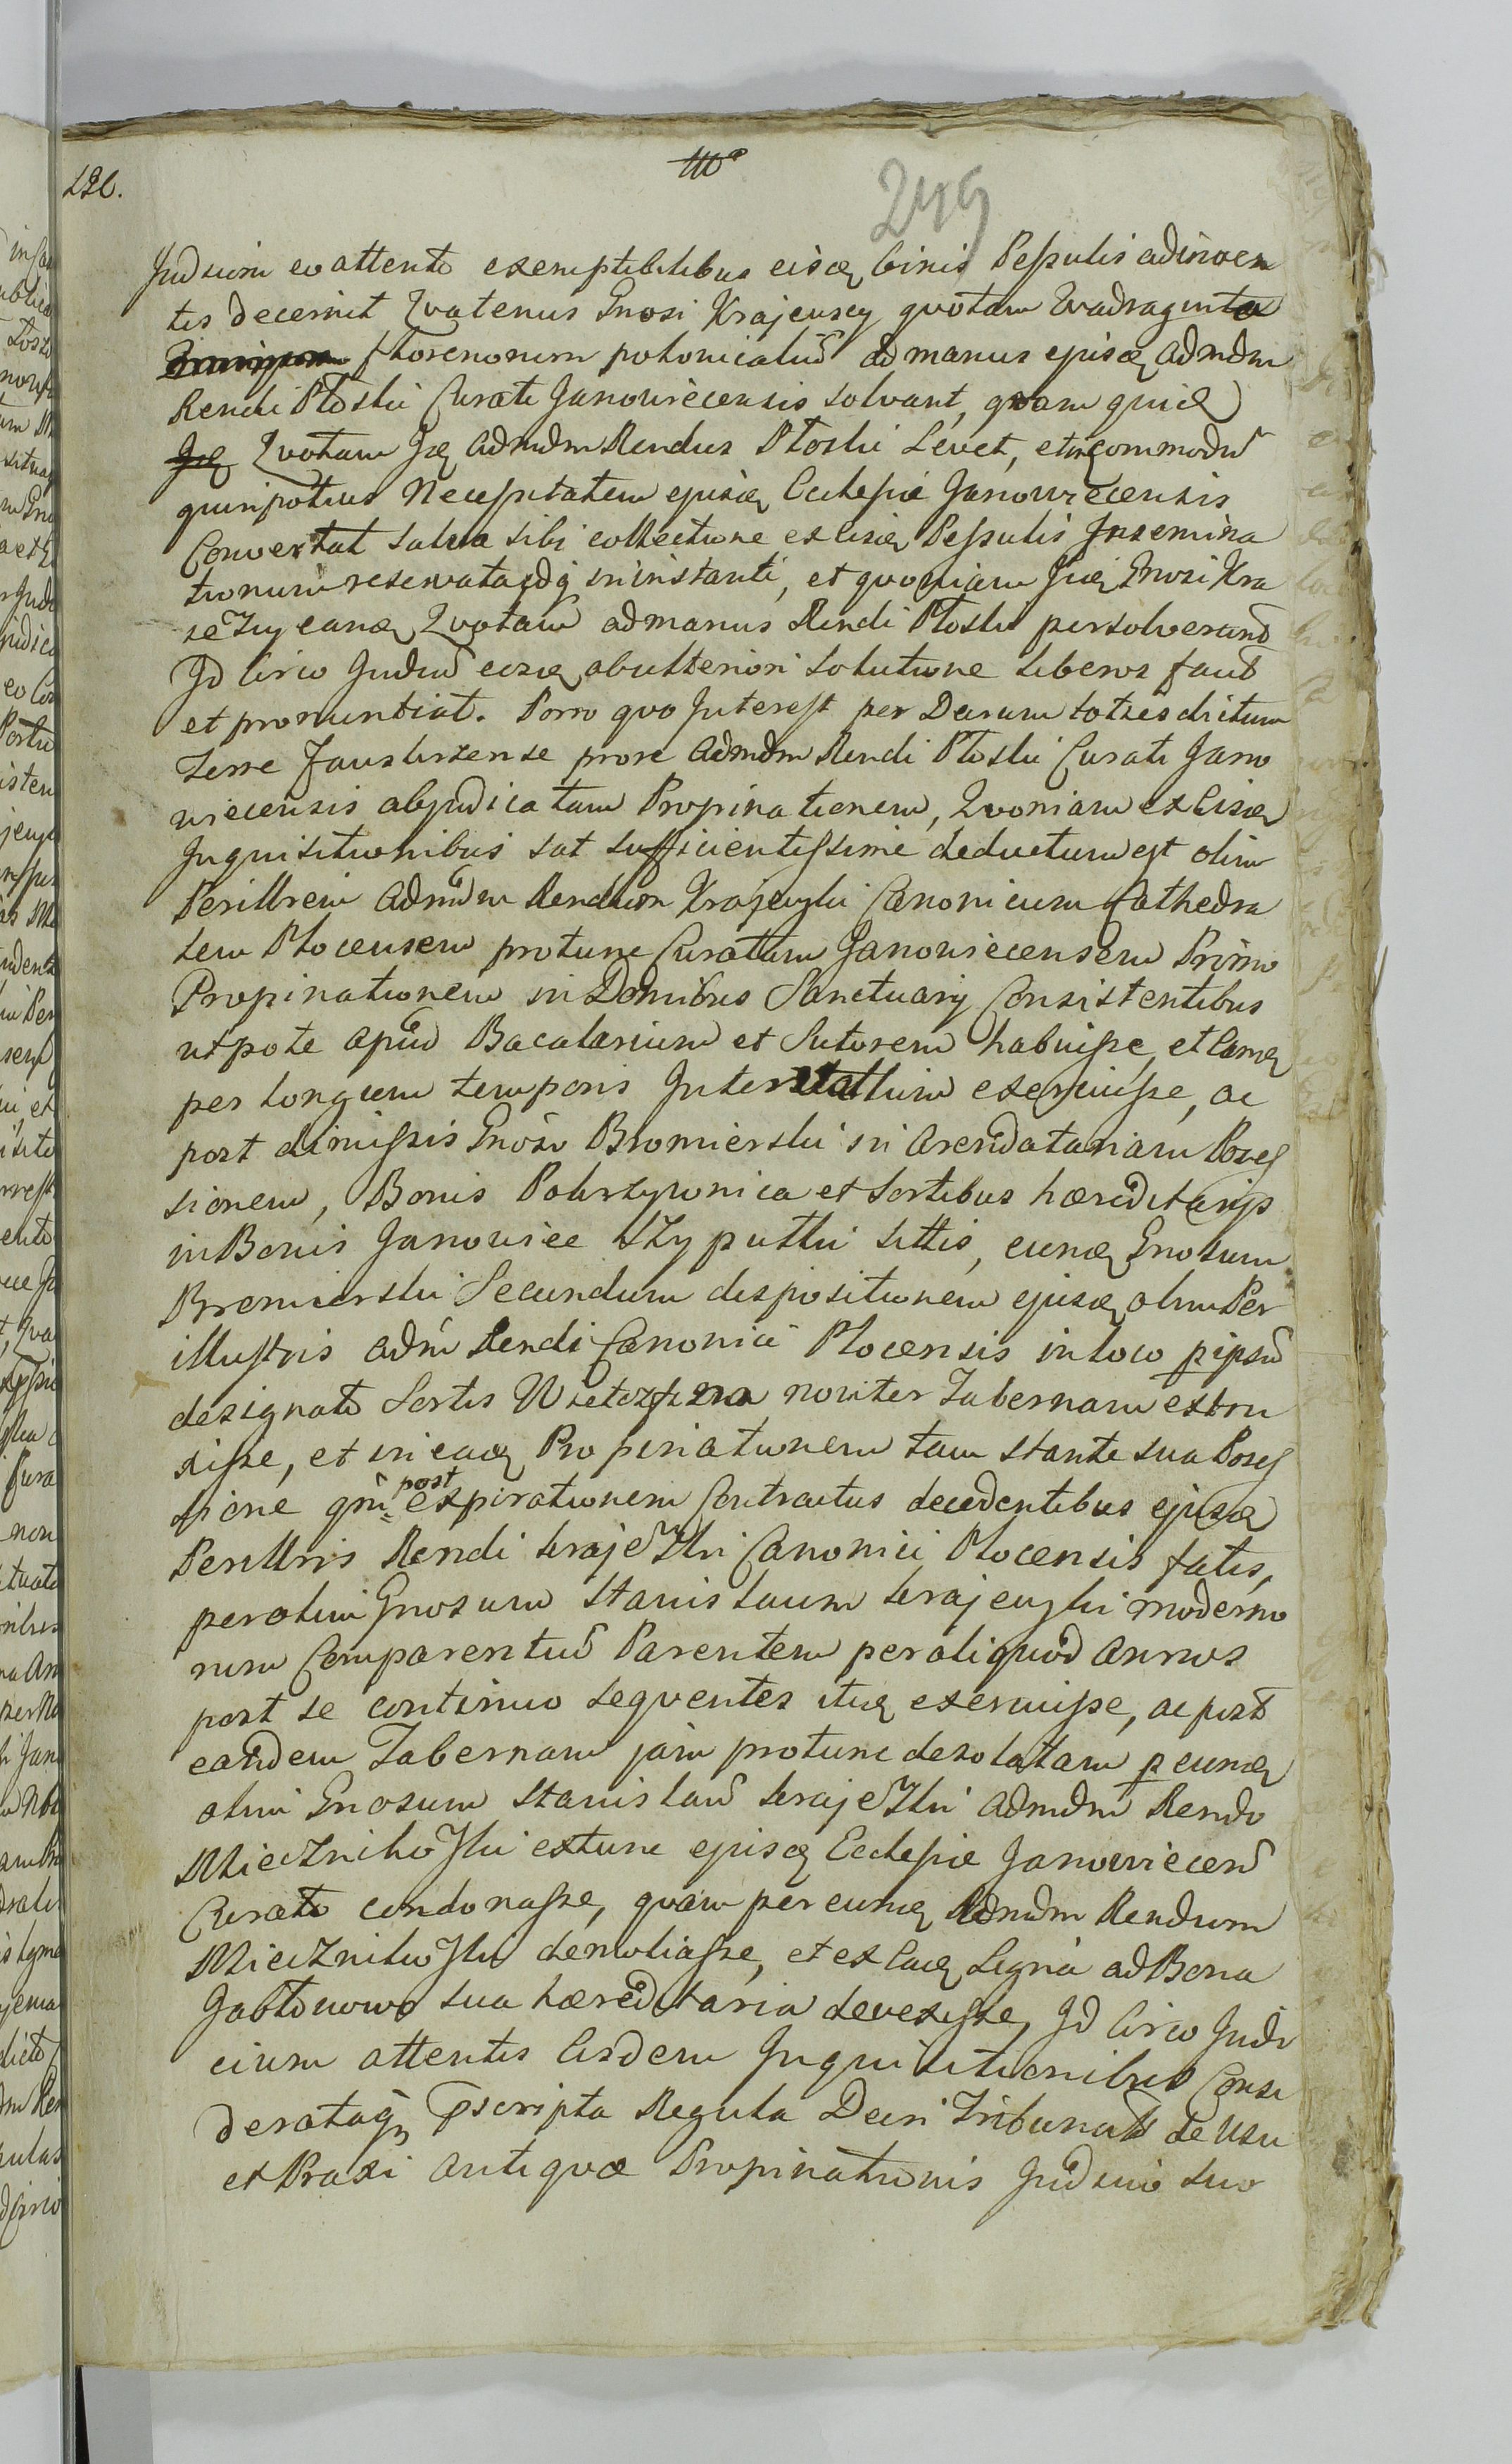 249
Judicium eo attento exemptibilibus eisq binis Pessulis adinven
tis decernit Qvatenus Gnosi Krajewscy qvotam Qvadraginta
florenorum polonicaliu ad manus ejusq admdm
Rendi Płoski Curati Janowiecensis solvant, qvam quid
Jsq Qvotam Jsq admdm Rendus Płoski Levet, et in commodu
quinpotius Necessitatem ejusq Ecclesiæ Janowiecensis
Convertat salva sibi collectione ex iisq Pessulis Jnsemina
tionum reservata idq in instanti, et qvoniam Jiiq Gnosi Kra
jeżwy eamq Qvotam ad manus Rendi Płoski persolverunt
Jd circo Judiu eosq ab ulteriori solutione liberos facit
et pronuntiat. Porro qvo Jnterest per Decrum toties dictum
Terre Zawskrzense prore admdm Rendi Płoski Curati Jano
wiecensis abjudicatam Propinationem, Qvoniam ex iisq
Jnquisitionibus sat sufficientissime deductum est olim
Perillrem admdm Rendum Krajewski Canonicum Cathedra
lem Plocensem protunc Curatum Janowiecensem Primo
Propinationem in Domibus Sanctuarij Consistentibus
utpote apud Bacalarium et Sutorem habuisse, et eamq
per longum temporis Jnterstallium exercuisse, ac
post dimissis Gnoso Bromierski in arendatariam Posses
sionem, Bonis Pokrzywnica et Sortibus hæreditarijs
in Bonis Janowiec Szypułki sittis, eumq Gnosum
Bromierski Secundum dispositionem ejusq olim Per
illustris adm Rendi Canonici Plocensis in loco p ipsu
designato Sortis noviter Tabernam extru
xisse, et in eaq Propinationem tam stante sua Posses
sione qm post expirationem Contractus decedentibus ejusq
Perillris Rendi Krajewski Canonici Plocensis fatis,
per olim Gnosum Stanislaum Krajewski moderno
rum Comparentiu Parentem per aliquod annos
post se continuo seqventes itiq exercuisse, ac post
eandem Tabernam jam protunc desolatam p eumq
olim Gnosum Stanislau Krajewski admdm Rendo
Miecznikowski extunc ejusq Ecclesiæ Janowiecens
Curato condonasse, qvam per eumq Admdm Rendum
Miecznikowski demoliasse, et ex eaq Ligna ad Bona
Jabłonowo sua hæreditaria devexisse, Jd circo Judi
cium attentis iisdem Jnquisitionibus Consi
derataq pscripta Regula Decri Tribunalis de Usu
et Praxi antiqvæ Propinationis Judicio suo